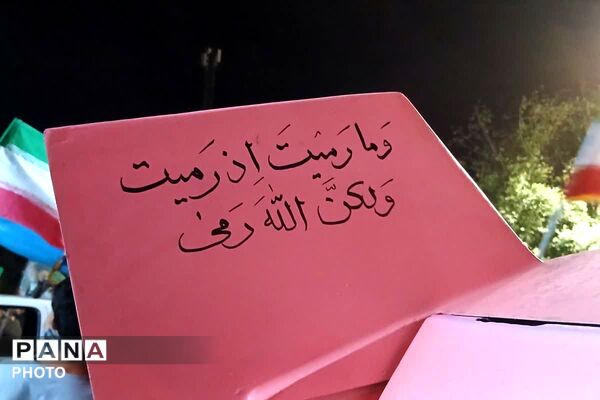 وَمَا رَمَيْتَ اِذ رَمَيت
وَلكنَّ اللّهَ رَمىٰ
PANA
PHOTO